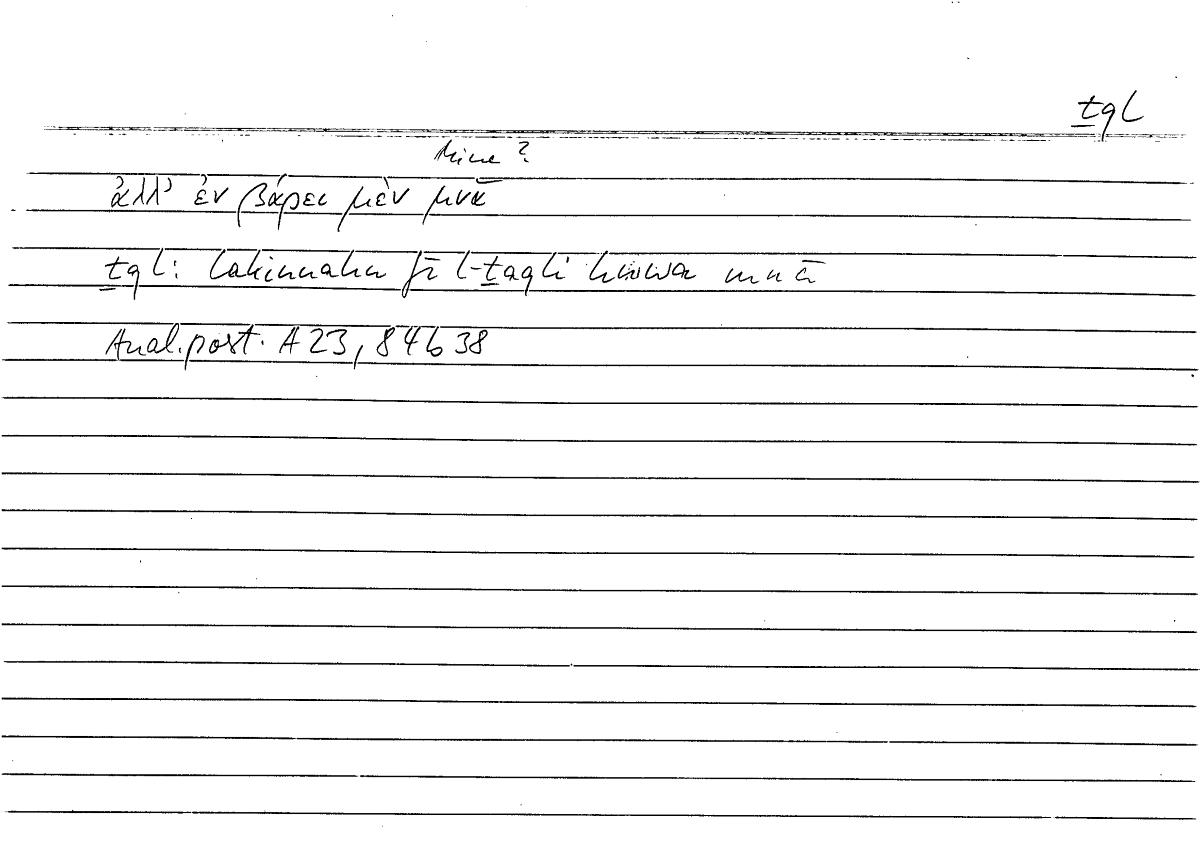 ṯql
Mine?
ἀλλ' ἐν βάρει μὲν μνᾶ
ṯql: lakinnahu fī l-ṯaqli huwa mnā
Anal. post. A 23, 84b38